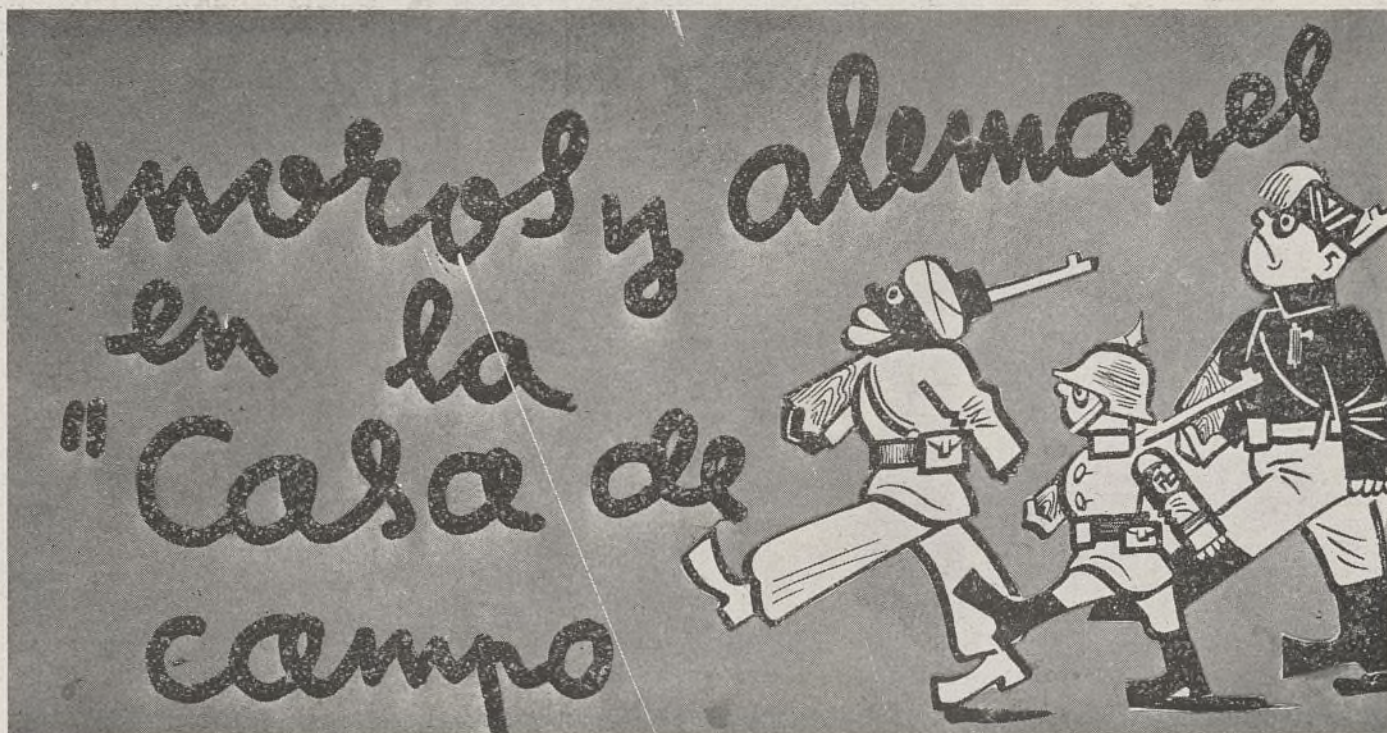 moros y alemanes
en la
"Casa de
campo